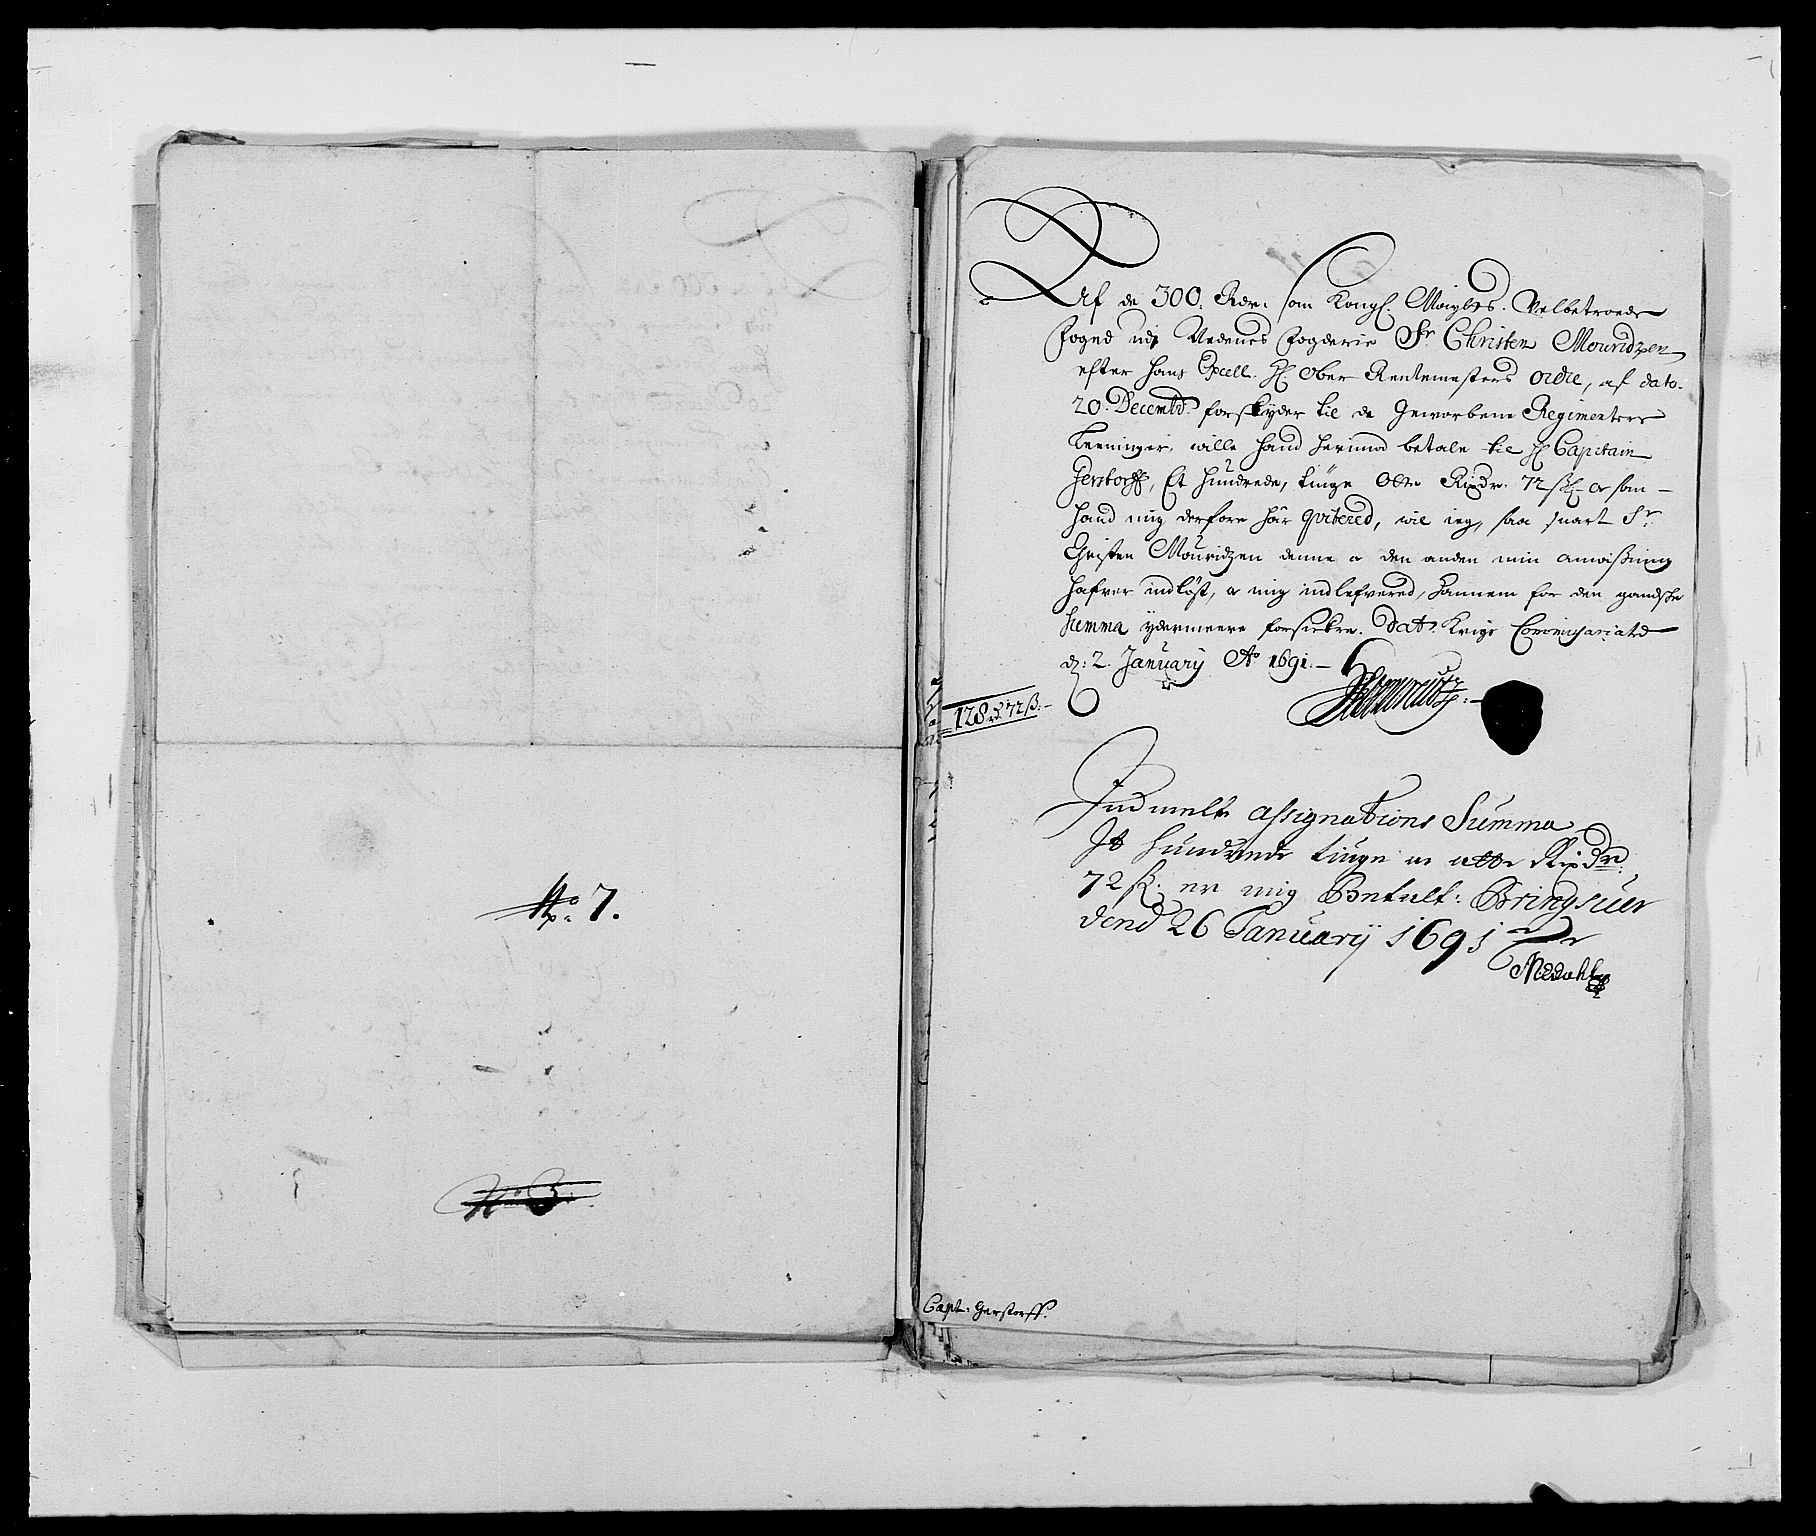 No: 7.
Af de 300. Rdr. som Kongl. Mayts. Velbetroede
Foged udj Nedenes Fogderie Sr. Christen Mouridzen
efter hans Excell. H. Ober Rentemesters ordre, af dato.
20. Decembr. forskyder til de Geworbene Regimenters
wille hand herimod betale til H. Capitain
Gerstorff, Et Hundrede, tiuge Otte Rixdr. 72 sk. o som
hand mig derfore har qvitered, wil ieg, saa snart Sr.
Christen Mouridzen denne o den anden min anvissning
hafver indløst, o mig indlefvered, hannem for den gandske
Summa ydermeere forsickre. Dat. Krigs Commissariatet
d: 2. January Ao 1691.
128 rd 72 ß:
Indmelte assignations Summa
Et hundrede tiuge oc otte Rixdr.
72 sk: er mig Betalt: Bringsuer
dend 26 January 1691
Capt: Gerstorff.